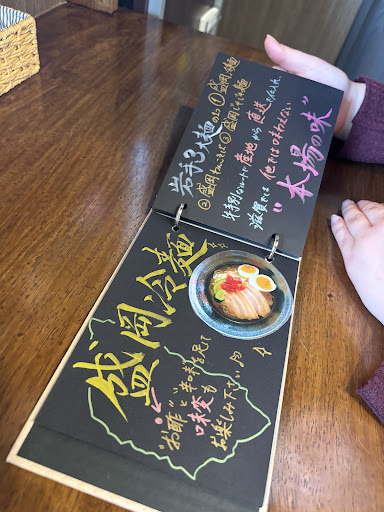 岩手3大麺のね①盛岡冷麺
②盛岡わんこそば③盛岡じゃじゃ麺
特別なルートで産地から直送された、
滋賀では他では味わえない
"本場の味"
盛岡冷麺
"お酢"と辛味を足して
味変も
お楽しみ下さい♪